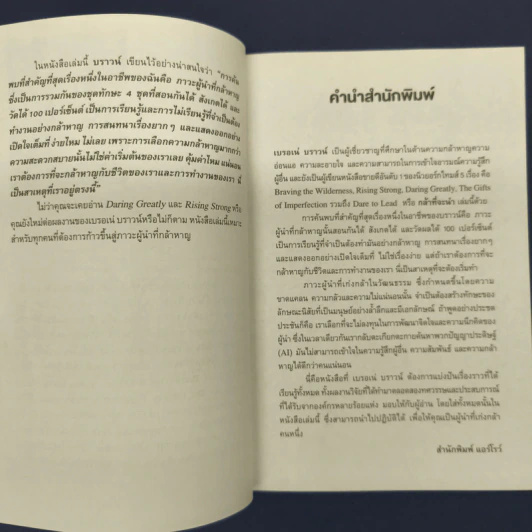 ในหนังสือเล่มนี้ บราวน์ เขียนไว้อย่างน่าสนใจว่า "การค้น
พบที่สำคัญที่สุดเรื่องหนึ่งในอาชีพของฉันคือ ภาวะผู้นำที่กล้าหาญ
ซึ่งเป็นการรวมกันของชุดทักษะ 4 ชุดที่สอนกันได้ สังเกตได้ และ
วัดได้ 100 เปอร์เซ็นต์ เป็นการเรียนรู้และการไม่เรียนรู้ที่จำเป็นต้อง
ทำงานอย่างกล้าหาญ การสนทนาเรื่องยาก ๆ และแสดงออกอย่าง
เปิดใจเต็มที่ ง่ายไหม ไม่เลย เพราะการเลือกความกล้าหาญมากกว่า
ความสะดวกสบายนั้นไม่ใช่ค่าเริ่มต้นของเราเลย คุ้มค่าไหม แน่นอน
เราต้องการที่จะกล้าหาญกับชีวิตของเราและการทำงานของเรา นี่
เป็นสาเหตุที่เราอยู่ตรงนี้"
ไม่ว่าคุณจะเคยอ่าน Daring Greatly และ Rising Strong หรือ
คุณยังใหม่ต่อผลงานของเบรอเน่ บราวน์หรือไม่ก็ตาม หนังสือเล่มนี้เหมาะ
สำหรับทุกคนที่ต้องการก้าวขึ้นสู่ภาวะผู้นำที่กล้าหาญ
คำนำสำนักพิมพ์
เบรอเน่ บราวน์ เป็นผู้เชี่ยวชาญที่ศึกษาในด้านความกล้าหาญความ
อ่อนแอ ความละอายใจ และความสามารถในการเข้าใจอารมณ์ความรู้สึก
ผู้อื่น และยังเป็นผู้เขียนหนังสือขายดีอันดับ 1 ของนิวยอร์กไทมส์ 5 เรื่อง คือ
Braving the Wilderness, Rising Strong, Daring Greatly, The Gifts
of Imperfection รวมถึง Dare to Lead หรือ กล้าที่จะนำ เล่มนี้ด้วย
การค้นพบที่สำคัญที่สุดเรื่องหนึ่งในอาชีพของบราวน์คือ ภาวะ
ผู้นำที่กล้าหาญนั้นสอนกันได้ สังเกตได้ และวัดผลได้ 100 เปอร์เซ็นต์
เป็นการเรียนรู้ที่จำเป็นต้องทำมันอย่างกล้าหาญ การสนทนาเรื่องยากๆ
และแสดงออกอย่างเปิดใจเต็มที่ ไม่ใช่เรื่องง่าย แต่ถ้าเราต้องการที่จะ
กล้าหาญกับชีวิตและการทำงานของเรา นี่เป็นสาเหตุที่จะต้องเริ่มทำ
ภาวะผู้นำที่เก่งกล้าในวัฒนธรรม ซึ่งกำหนดขึ้นโดยความ
ขาดแคลน ความกลัวและความไม่แน่นอนนั้น จำเป็นต้องสร้างทักษะของ
ลักษณะนิสัยที่เป็นมนุษย์อย่างล้ำลึกและมีเอกลักษณ์ ถ้าพูดอย่างประชด
ประชันก็คือ เราเลือกที่จะไม่ลงทุนในการพัฒนาจิตใจและความนึกคิดของ
ผู้นำ ซึ่งในเวลาเดียวกันเรากลับตะเกียกตะกายค้นหาพวกปัญญาประดิษฐ์
(AI) มันไม่สามารถเข้าใจในความรู้สึกผู้อื่น ความสัมพันธ์ และความกล้า
หาญได้ดีกว่าคนแน่นอน
นี่คือหนังสือที่ เบรอเน่ บราวน์ ต้องการแบ่งเป็นเรื่องราวที่ได้
เรียนรู้ทั้งหมด ทั้งผลงานวิจัยที่ได้ทำมาตลอดสองทศวรรษและประสบการณ์
ที่ได้รับจากองค์กรหลายร้อยแห่ง มอบให้กับผู้อ่าน โดยใส่ทั้งหมดนั้นใน
หนังสือเล่มนี้ ซึ่งสามารถนำไปปฏิบัติได้ เพื่อให้คุณเป็นผู้นำที่เก่งกล้า
คนหนึ่ง
สำนักพิมพ์ แอร์โรว์